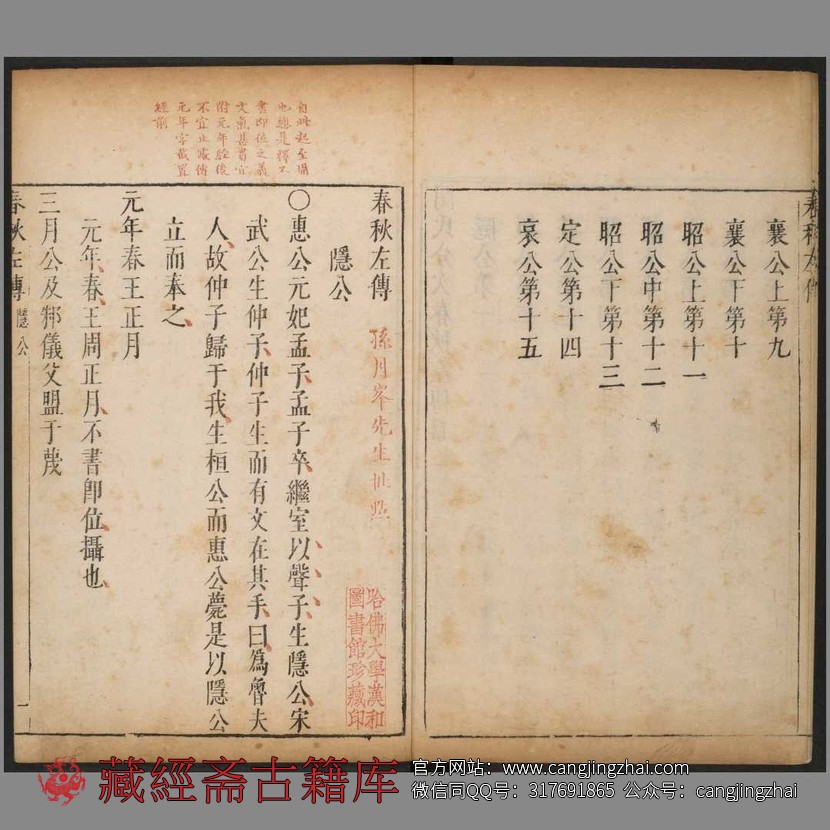 春秋左傳
襄公上第九
襄公下第十
昭公上第十一
昭公中第十二
昭公下第十三
定公第十四
哀公第十五
春秋左傳
孫月峯先生批點
哈佛大學漢和
圖書館珍藏印
隱公
自此起至攝
也總是釋不
書卽位之義
文氣甚貫宜
附元年經後
不宜止據傳
元年字截置
經前
○惠公元妃孟子孟子卒繼室以聲子生隱公宋
武公生仲子仲子生而有文在其手曰爲魯夫
人故仲子歸于我生桓公而惠公薨是以隱公
立而奉之
元年春王正月
元年春王周正月不書卽位攝也
三月公及邾儀父盟于蔑
春秋左傳 隱公 一
藏經斋古籍库
官方网站：www.cangjingzhai.com
微信同QQ号：317691865 公众号：cangjingzhai